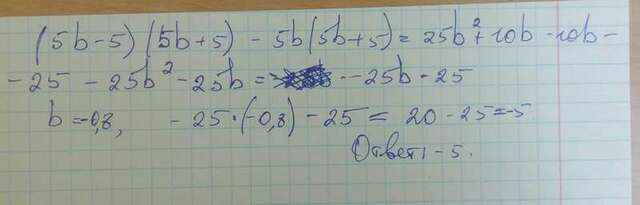 (5b-5)(5b+5) - 5b(5b+5) = 25b²+10b-10b-
-25 - 25b² - 25b = -25b - 25
b = -0,8, -25·(-0,8) - 25 = 20 - 25 = -5
Ответ: -5.